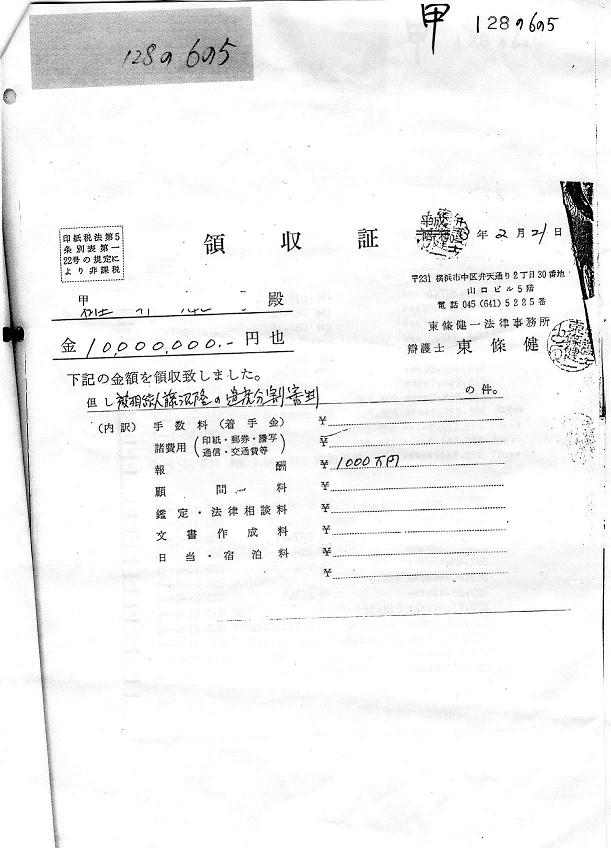 128の6の5
甲 128の6の5
印紙税法第5
条別表第一
22号の規定に
より非課税
領収証
年2月21日
〒231 横浜市中区弁天通り2丁目30番地
山口ビル5階
電話 045 (641) 5225番
東條健一法律事務所
辯護士 東條健
甲
殿
金 10,000,000.- 円也
下記の金額を領収致しました。
但し 被相続人藤沢隆の遺産分割審判 の件。
(内訳) 手数料(着手金) ¥
諸費用 (印紙・郵券・謄写 通信・交通費等) ¥
報酬 ¥ 1000万円
顧問料 ¥
鑑定・法律相談料 ¥
文書作成料 ¥
日当・宿泊料 ¥
¥